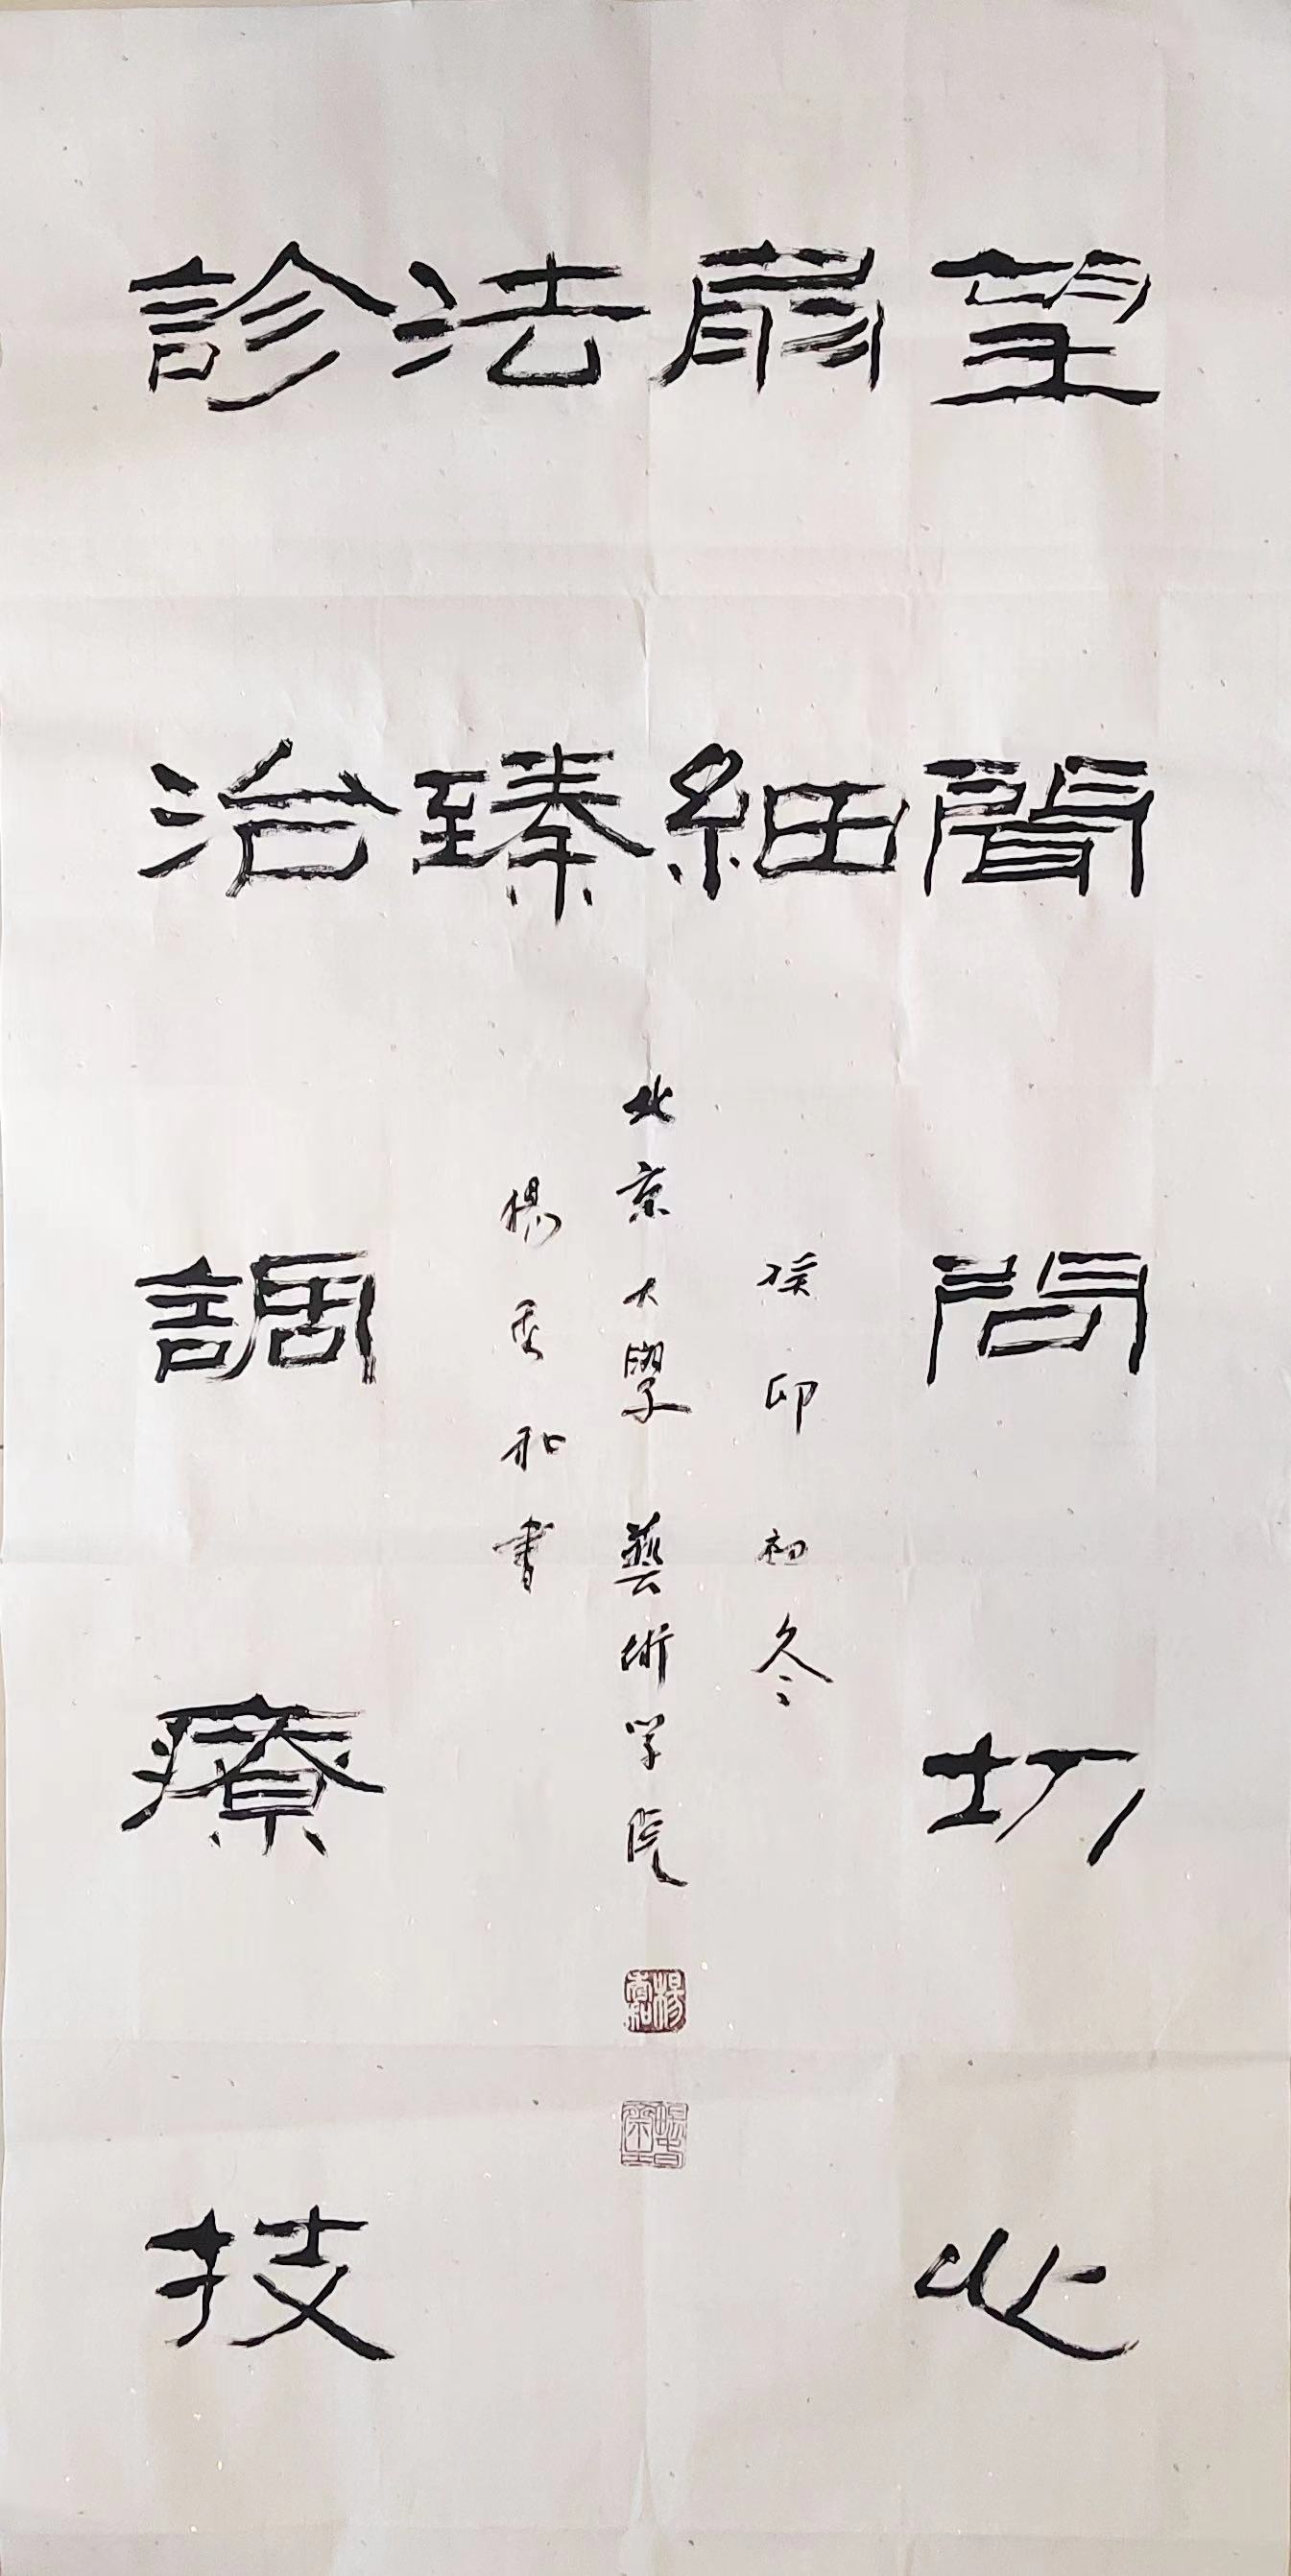 望聞問切心
細
法臻
診治調療技
癸卯初冬
北京大學藝術学院
楊香和書
楊香和